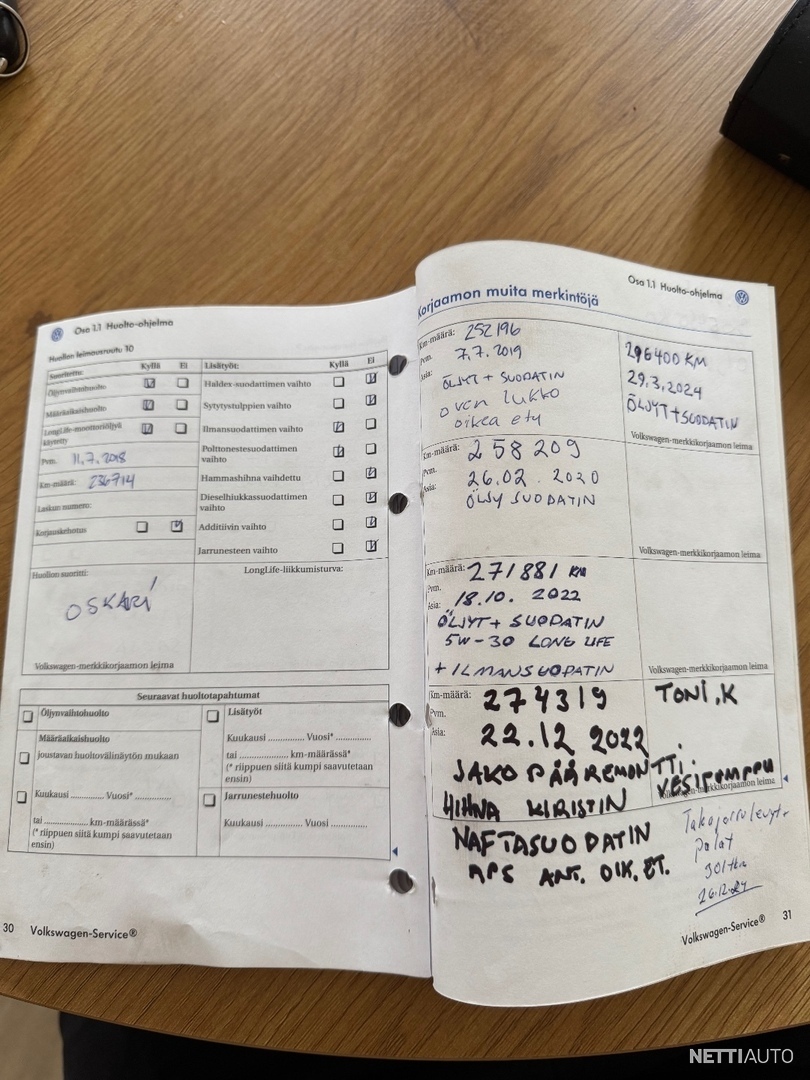 Osa 1.1 Huolto-ohjelma
Huollon leimausruutu 30
Suoritettu: Kyllä Ei
Öljynvaihtohuolto
Määräaikaishuolto
LongLife-moottoriöljyä
käytetty
Pvm. 11.7.2018
Km-määrä: 236714
Laskun numero:
Korjauskehotus
Huollon suoritti:
OSKARI
Volkswagen-merkkikorjaamon leima
Lisätyöt: Kyllä Ei
Haldex-suodattimen vaihto
Sytytystulppien vaihto
Ilmansuodattimen vaihto
Polttonestesuodattimen
vaihto
Hammashihna vaihdettu
Dieselhiukkassuodattimen
vaihto
Additiivin vaihto
Jarrunesteen vaihto
LongLife-liikkumisturva:
Seuraavat huoltotapahtumat
Öljynvaihtohuolto
Määräaikaishuolto
joustavan huoltovälinäytön mukaan
Kuukausi .............. Vuosi* ..............
tai ...................... km-määrässä*
(* riippuen siitä kumpi saavutetaan
ensin)
Lisätyöt
Kuukausi .............. Vuosi* ..............
tai ...................... km-määrässä*
(* riippuen siitä kumpi saavutetaan
ensin)
Jarrunestehuolto
Kuukausi .............. Vuosi ..............
30 Volkswagen-Service®
Osa 1.1 Huolto-ohjelma
Korjaamon muita merkintöjä
Km-määrä: 252196
Pvm. 7.7.2019
Asia: ÖLJYT + SUODATIN
oven lukko
oikea etu
296400 KM
29.3.2024
ÖLJYT+SUODATIN
Volkswagen-merkkikorjaamon leima
Km-määrä: 258209
Pvm. 26.02.2020
Asia: ÖLJY SUODATIN
Volkswagen-merkkikorjaamon leima
Km-määrä: 271881 KM
Pvm. 18.10. 2022
Asia: ÖLJYT + SUODATIN
5W-30 LONG LIFE
+ ILMANSUODATIN
Volkswagen-merkkikorjaamon leima
Km-määrä: 274319
Pvm. 22.12 2022
Asia:
TONI.K
JAKO PÄÄREMONTTI.
HIHNA KIRISTIN VESIPUMPPU
Volkswagen-merkkikorjaamon leima
NAFTASUODATIN
APS ANT. OIK. ET.
Takajarrulevyt+
palat
301tkm
26.12.24
Volkswagen-Service® 31
NETTIAUTO